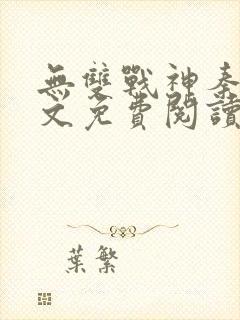 無雙戰神秦
文免費閱讀
葉繁